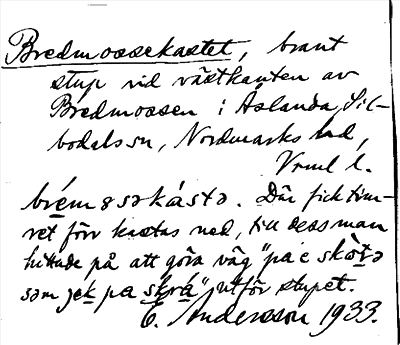 Bredmossekastet, brant
stup vid västkanten av
Bredmossen i Åslanda, Sil-
bodals sn, Nordmarks hd,
Vrml l.
brém8səkástə. Där fick tim-
ret förr kastas ned, till dess man
hittade på att göra väg "pa e skòtə
som jek pa skrá" utför stupet.
E. Andersson 1933.